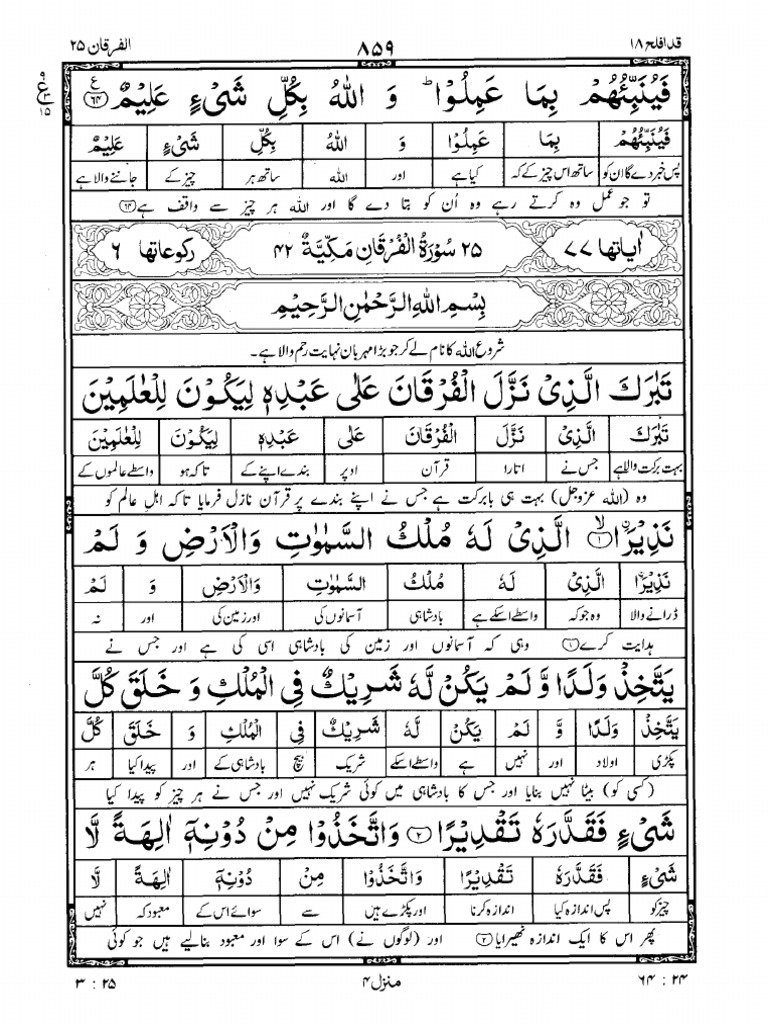 قد افلح ۱۸
۸۵۹
الفرقان ۲۵
فَیُنَبِّئُهُمْ بِمَا عَمِلُوْا ؕ وَ اللّٰهُ بِكُلِّ شَیْءٍ عَلِیْمٌ ۠﴿۶۴﴾
فَیُنَبِّئُهُمْ بِمَا عَمِلُوْا وَ اللّٰهُ بِكُلِّ شَیْءٍ عَلِیْمٌ
پس خبر دے گا ان کو ساتھ اس چیز کے کہ کیا ہے اور اللہ ساتھ ہر چیز کے جاننے والا ہے
تو جو عمل وہ کرتے رہے وہ اُن کو بتا دے گا اور اللہ ہر چیز سے واقف ہے ﴿۶۴﴾
اٰیاتها ۷۷ ۲۵ سُوْرَةُ الْفُرْقَانِ مَكِّیَّةٌ ۴۲ رکوعاتها ۶
بِسْمِ اللّٰهِ الرَّحْمٰنِ الرَّحِیْمِ
شروع اللہ کا نام لے کر جو بڑا مہربان نہایت رحم والا ہے۔
تَبٰرَكَ الَّذِیْ نَزَّلَ الْفُرْقَانَ عَلٰی عَبْدِهٖ لِیَكُوْنَ لِلْعٰلَمِیْنَ
تَبٰرَكَ الَّذِیْ نَزَّلَ الْفُرْقَانَ عَلٰی عَبْدِهٖ لِیَكُوْنَ لِلْعٰلَمِیْنَ
بہت برکت والا ہے جس نے اتارا قرآن اوپر بندے اپنے کے تاکہ ہو واسطے عالموں کے
وہ (اللہ عزوجل) بہت ہی بابرکت ہے جس نے اپنے بندے پر قرآن نازل فرمایا تاکہ اہلِ عالم کو
نَذِیْرَا ۙ﴿۱﴾ الَّذِیْ لَهٗ مُلْكُ السَّمٰوٰتِ وَالْاَرْضِ وَ لَمْ
نَذِیْرَا الَّذِیْ لَهٗ مُلْكُ السَّمٰوٰتِ وَالْاَرْضِ وَ لَمْ
ڈرانے والا وہ جو کہ واسطے اسکے ہے بادشاہی آسمانوں کی اور زمین کی اور نہ
ہدایت کرے ﴿۱﴾ وہی کہ آسمانوں اور زمین کی بادشاہی اسی کی ہے اور جس نے
یَتَّخِذْ وَلَدًا وَّ لَمْ یَكُنْ لَّهٗ شَرِیْكٌ فِی الْمُلْكِ وَ خَلَقَ كُلَّ
یَتَّخِذْ وَلَدًا وَّ لَمْ یَكُنْ لَّهٗ شَرِیْكٌ فِی الْمُلْكِ وَ خَلَقَ كُلَّ
پکڑی اولاد اور نہیں ہے واسطے اسکے شریک بیچ بادشاہی کے اور پیدا کیا ہر
(کسی کو) بیٹا نہیں بنایا اور جس کا بادشاہی میں کوئی شریک نہیں اور جس نے ہر چیز کو پیدا کیا
شَیْءٍ فَقَدَّرَهٗ تَقْدِیْرًا ﴿۲﴾ وَاتَّخَذُوْا مِنْ دُوْنِهٖۤ اٰلِهَةً لَّا
شَیْءٍ فَقَدَّرَهٗ تَقْدِیْرًا وَاتَّخَذُوْا مِنْ دُوْنِهٖۤ اٰلِهَةً لَّا
چیز کو پس اندازہ کیا اندازہ کرنا اور پکڑے ہیں سے سوائے اس کے معبود کہ نہیں
پھر اس کا ایک اندازہ ٹھہرایا ﴿۲﴾ اور (لوگوں نے) اس کے سوا اور معبود بنالیے ہیں جو کوئی
۲۴ : ۶۴
منزل ۴
۲۵ : ۳